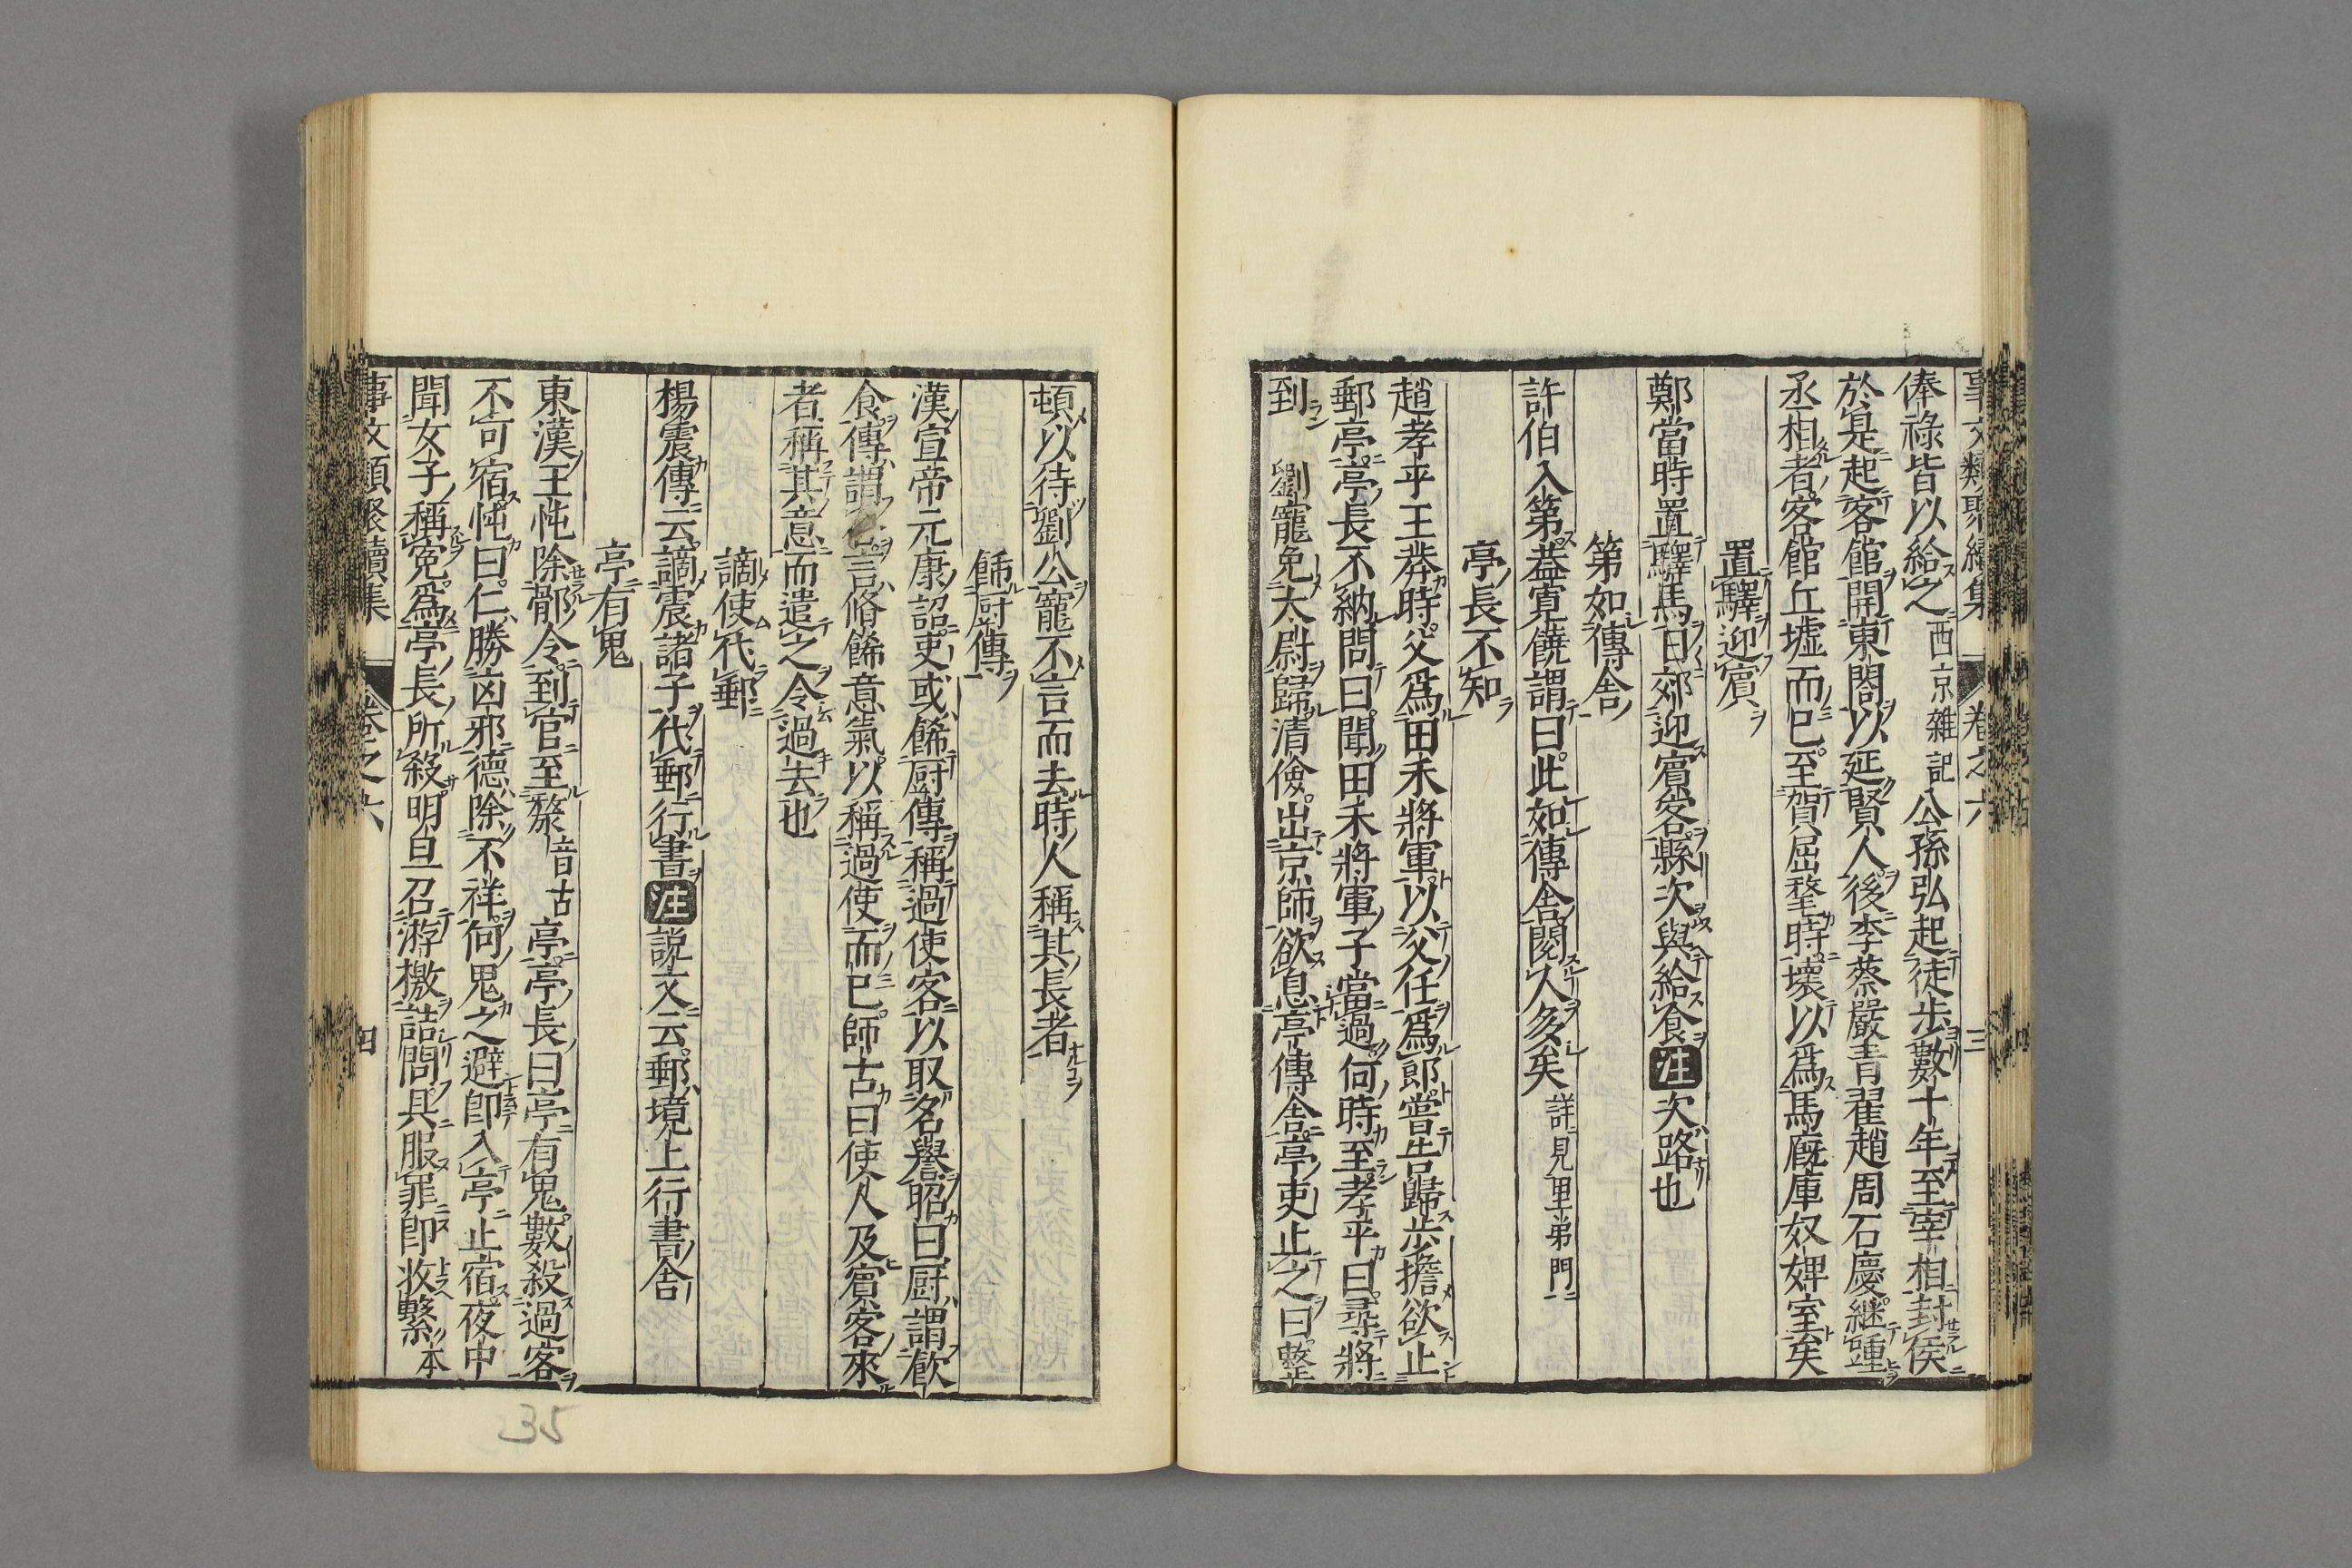 事文類聚續集 卷之六 三
俸祿皆以給之西京雜記公孫弘起徒步數十年至宰相封侯
於是起客館開東閣以延賢人後李蔡嚴青翟趙周石慶継踵
丞相者客館丘墟而已至賀屈氂時壞以爲馬廐庫奴婢室矣
置驛迎賓
鄭當時置驛馬日郊迎賓客縣次與給食注次路也
第如傳舍
許伯入第葢寛饒謂曰此如傳舍閱人多矣詳見里弟門
亭長不知
趙孝平王莽時父爲田禾將軍以父任爲郎嘗告歸步擔欲止
郵亭亭長不納問曰聞田禾將軍子當過何時至孝平曰尋將
到 劉寵免太尉歸清儉出京師欲息亭傳舍亭吏止之曰整
頓以待劉公寵不言而去時人稱其長者
餙厨傳
漢宣帝元康詔吏或餙厨傳稱過使客以取名譽韶曰厨謂飮
食傳謂 言脩餙意氣以稱過使而已師古曰使人及賓客來
者稱其意而遣之令過去也
謫使代郵
楊震傳云謫震諸子代郵行書注說文云郵境上行書舍
亭有鬼
東漢王忳除郿令到官至斄音古亭亭長曰亭有鬼數殺過客
不可宿忳曰仁勝凶邪德除不祥何鬼之避卽入亭止宿夜中
聞女子稱冤爲亭長所殺明旦召游檄詰問具服罪卽收繫本
事文類聚續集 卷之六 四
35